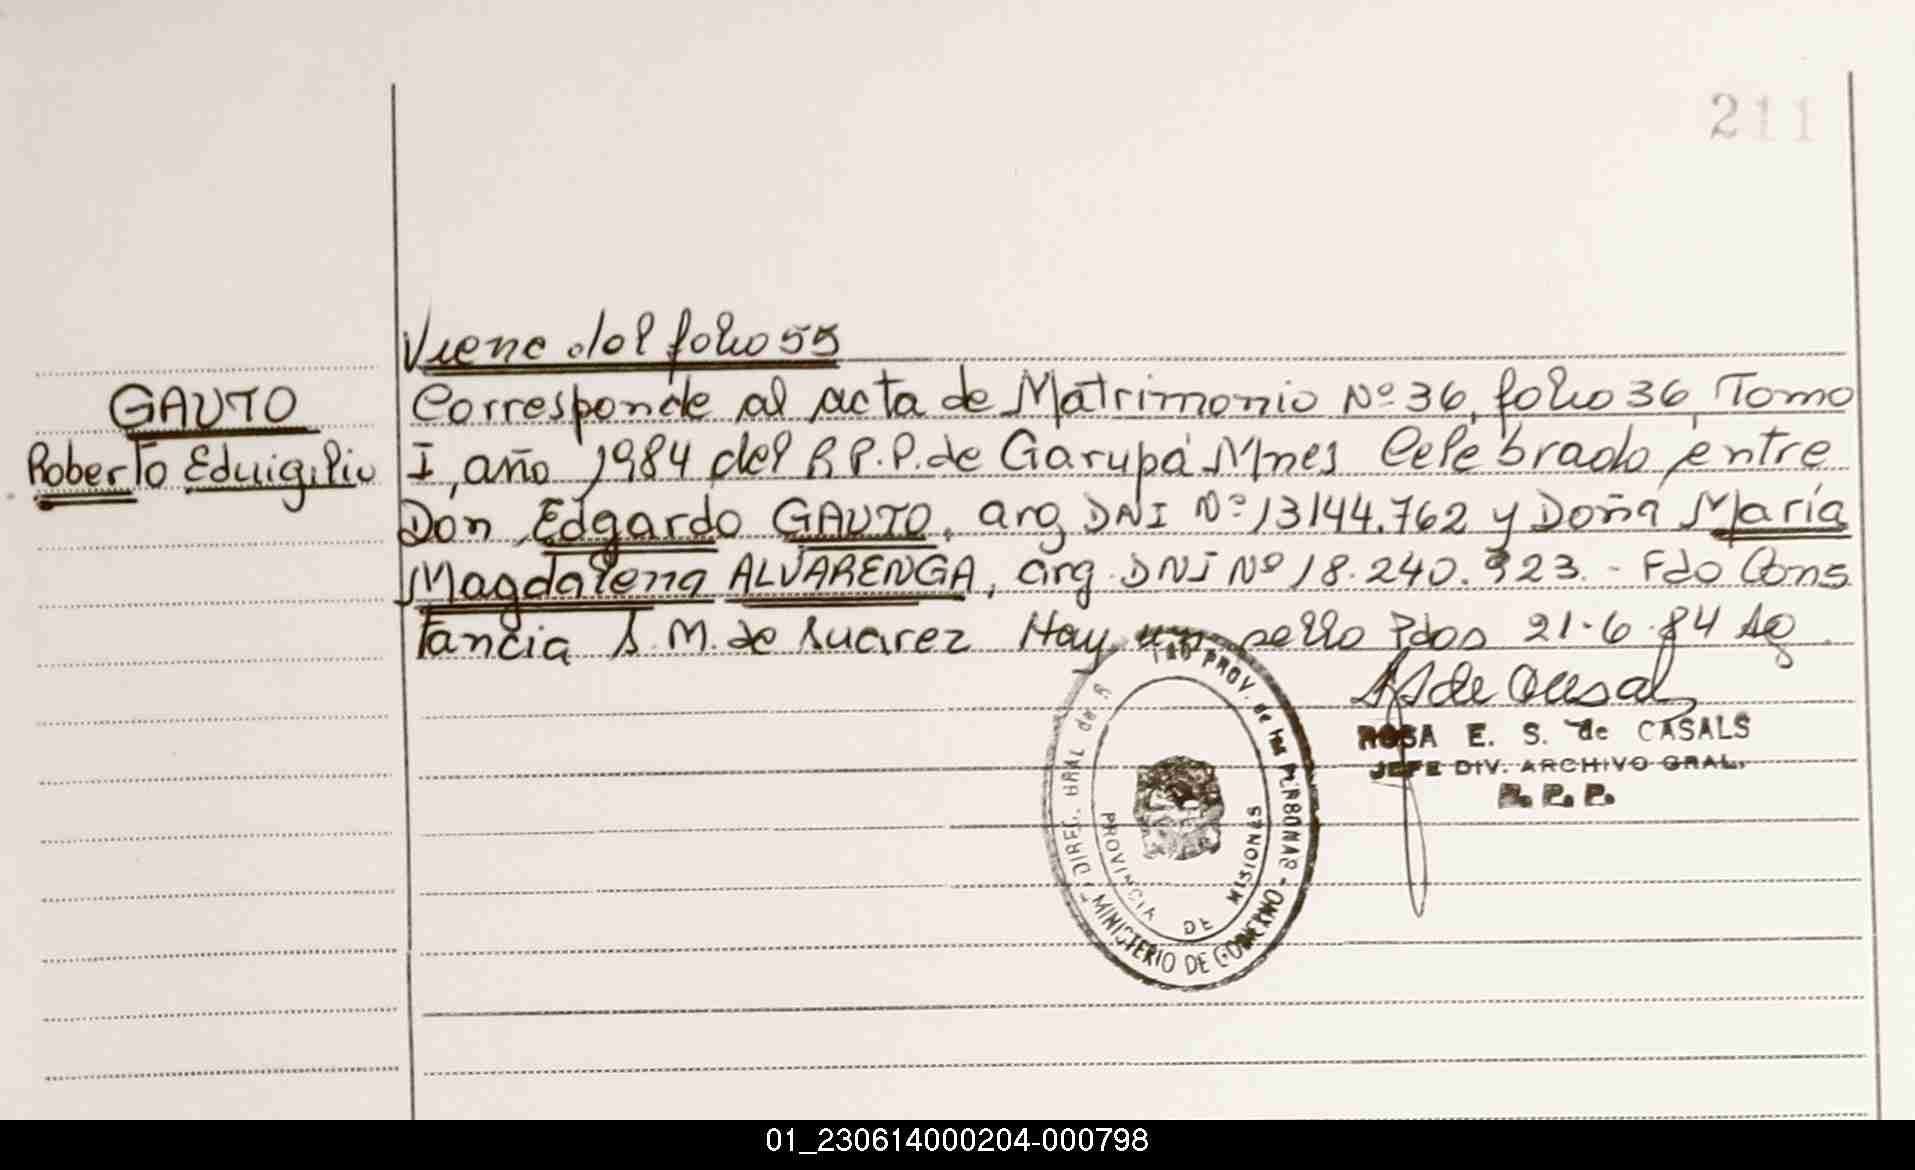 211
Viene del folio 55
GAUTO
Roberto Eduigilio
Corresponde al acta de Matrimonio Nº 36, folio 36, Tomo
I, año 1984 del R.P.P. de Garupá Mnes Celebrado entre
Don Edgardo GAUTO, arg DNI Nº 13144.762 y Doña María
Magdalena ALVARENGA, arg. DNI Nº 18.240.923.- Fdo Cons
tancia S. M. de Suarez Hay un sello Pdas 21.6.84
ROSA E. S. de CASALS
JEFE DIV. ARCHIVO GRAL.
R. P. P.
DIREC. GRAL de R PROV. de las PERSONAS - MINISTERIO DE GOBIERNO
PROVINCIA DE MISIONES
01_230614000204-000798